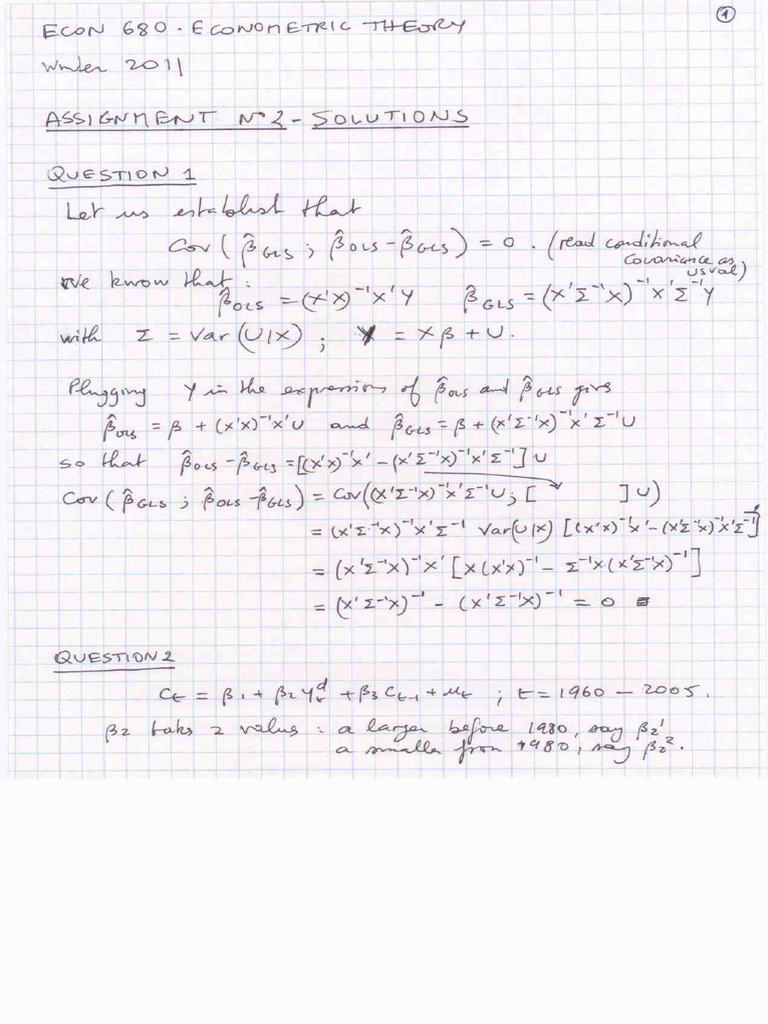 ①
ECON 680. ECONOMETRIC THEORY
Winter 2011
ASSIGNMENT N°2 - SOLUTIONS
QUESTION 1
Let us establish that
Cov(β̂GLS ; β̂OLS - β̂GLS) = 0. (read conditional
covariance as
usual)
We know that :
β̂OLS = (X'X)⁻¹X'Y β̂GLS = (X'Σ⁻¹X)⁻¹X'Σ⁻¹Y
with Σ = Var(U|X) ; Y = Xβ + U.
Plugging Y in the expressions of β̂OLS and β̂GLS gives
β̂OLS = β + (X'X)⁻¹X'U and β̂GLS = β + (X'Σ⁻¹X)⁻¹X'Σ⁻¹U
so that β̂OLS - β̂GLS = [(X'X)⁻¹X' - (X'Σ⁻¹X)⁻¹X'Σ⁻¹]U
Cov(β̂GLS ; β̂OLS - β̂GLS) = Cov((X'Σ⁻¹X)⁻¹X'Σ⁻¹U ; [ ]U)
= (X'Σ⁻¹X)⁻¹X'Σ⁻¹ Var(U|X) [(X'X)⁻¹X' - (X'Σ⁻¹X)⁻¹X'Σ⁻¹]'
= (X'Σ⁻¹X)⁻¹X' [X(X'X)⁻¹ - Σ⁻¹X(X'Σ⁻¹X)⁻¹]
= (X'Σ⁻¹X)⁻¹ - (X'Σ⁻¹X)⁻¹ = 0
QUESTION 2
Ct = β1 + β2 Ytᵈ + β3 Ct-1 + ut ; t = 1960 - 2005.
β2 taks 2 value : a larger before 1980, say β2¹
a smaller from 1980, say β2².